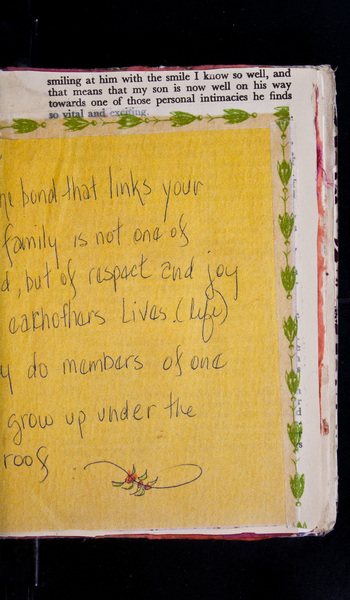 smiling at him with the smile I know so well, and
that means that my son is now well on his way
towards one of those personal intimacies he finds
so vital and exciting.
he bond that links your
family is not one of
d, but of respect and joy
eachothers Lives. (life)
y do members of one
grow up under the
roof